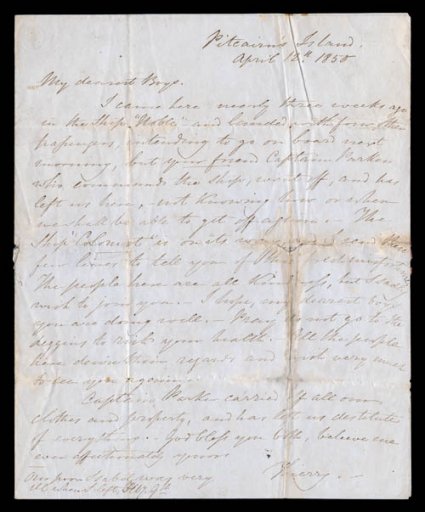 Pitcairn's Island.
April 12th 1850
My dearest Boys.
I came here nearly three weeks ago
in the Ship "Noble" and landed with four other
passengers, intending to go on board next
morning, but your friend Captain Parker
who commands the ship, went off, and has
left us here, not knowing how or when
we shall be able to get off again. The
Ship "Colonist" is on its way and I send these
few lines to tell you of this
The people here are all kindness, but I
wish to join you. I hope, my dearest boys
you are doing well. Pray do not go to the
diggings to risk your health. All the people
here desire their regards and wish very much
to see you again.
Captain Parker carried off all our
clothes and property, and has left us destitute
of everything. God bless you both, believe me
ever affectionately yours
Thierry.
Our poor Isabel was very
ill when I left,